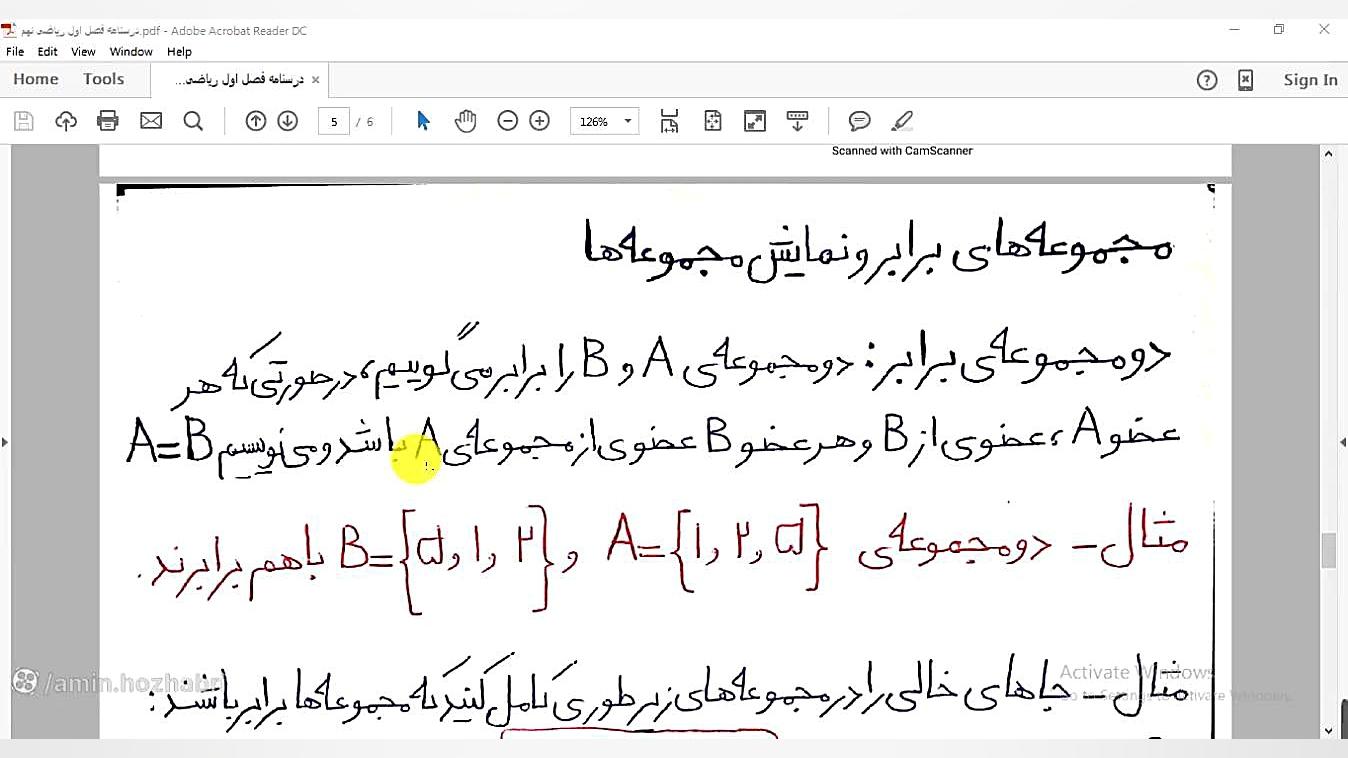 درسنامه فصل اول ریاضی نهم.pdf - Adobe Acrobat Reader DC
File Edit View Window Help
Home Tools درسنامه فصل اول ریاضی... × Sign In
5 / 6 126%
Scanned with CamScanner
مجموعه‌های برابر و نمایش مجموعه‌ها
دو مجموعه‌ی برابر: دو مجموعه‌ی A و B را برابر می‌گوییم، در صورتی که هر
عضو A، عضوی از B و هر عضو B عضوی از مجموعه‌ی A باشد و می‌نویسیم A=B
مثال - دو مجموعه‌ی A={۱,۲,۵} و B={۵,۱,۲} با هم برابرند.
مثال - جاهای خالی را در مجموعه‌های زیر طوری کامل کنید که مجموعه‌ها برابر باشند:
/amin.hozhabri
Activate Windows
Go to Settings to activate Windows.